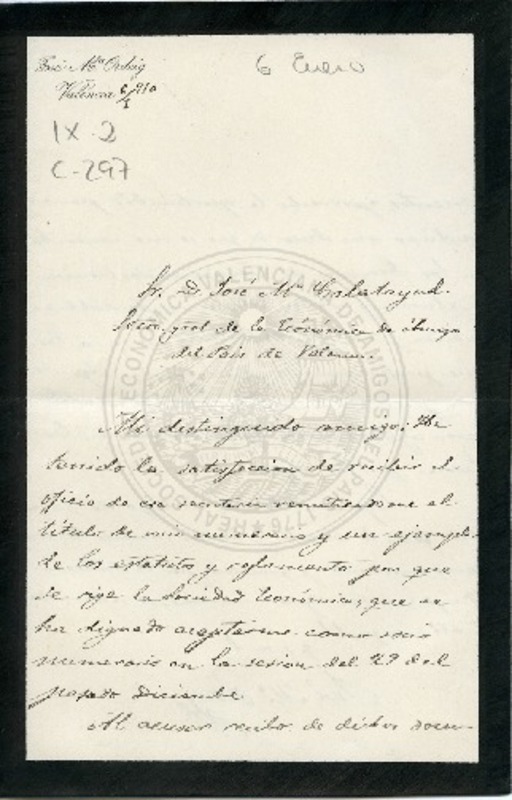 6 Enero
José Mª Orbig
Valencia 6/1 910
IX-2
C-297
Sr. D. José Mª Calatayud.
Secr. gral de la Económica de Amigos
del País de Valencia.
Mi distinguido amigo: He
tenido la satisfaccion de recibir el
oficio de esa secretaria remitiendome el
título de socio numerario y un ejemplar
de los estatutos y reglamento por que
se rige la Sociedad Económica, que se
ha dignado aceptarme como socio
numerario en la sesion del 29 del
pasado Diciembre
Al acusar recibo de dichos docu-
REAL SOCIEDAD ECONÓMICA VALENCIANA DE AMIGOS DEL PAÍS 1776